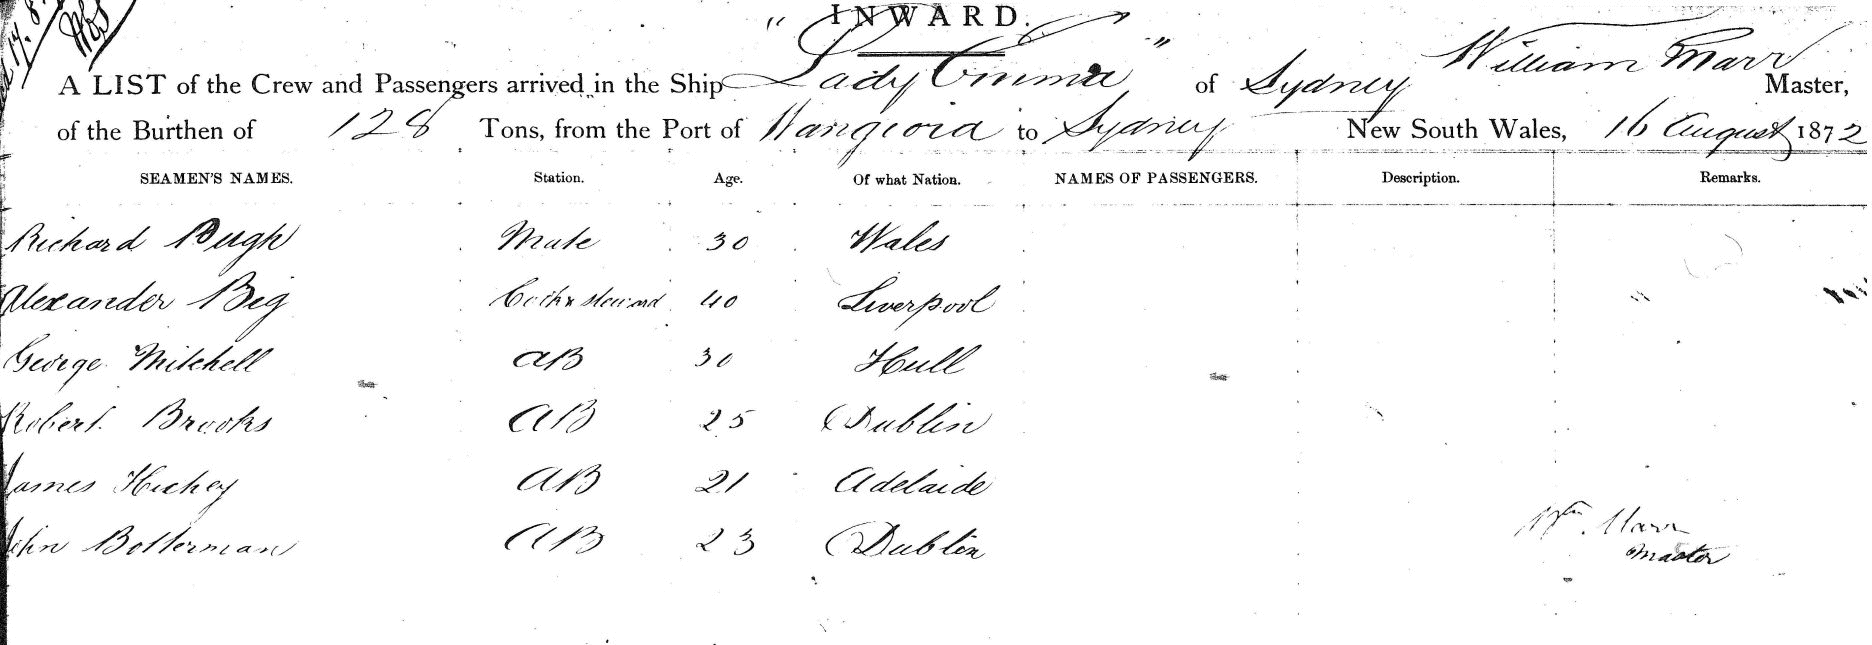 INWARD.
A LIST of the Crew and Passengers arrived in the Ship "Lady Emma" of Sydney William Marr Master,
of the Burthen of 128 Tons, from the Port of to Sydney New South Wales, 16 August 1872
SEAMEN'S NAMES. Station. Age. Of what Nation. NAMES OF PASSENGERS. Description. Remarks.
Richard Pugh Mate 30 Wales
Alexander Big Cook & steward 40 Liverpool
George Mitchell AB 30 Hull
Robert Brooks AB 25 Dublin
James Hickey AB 21 Adelaide
John Botterman AB 23 Dublin
Wm. Marr
Master